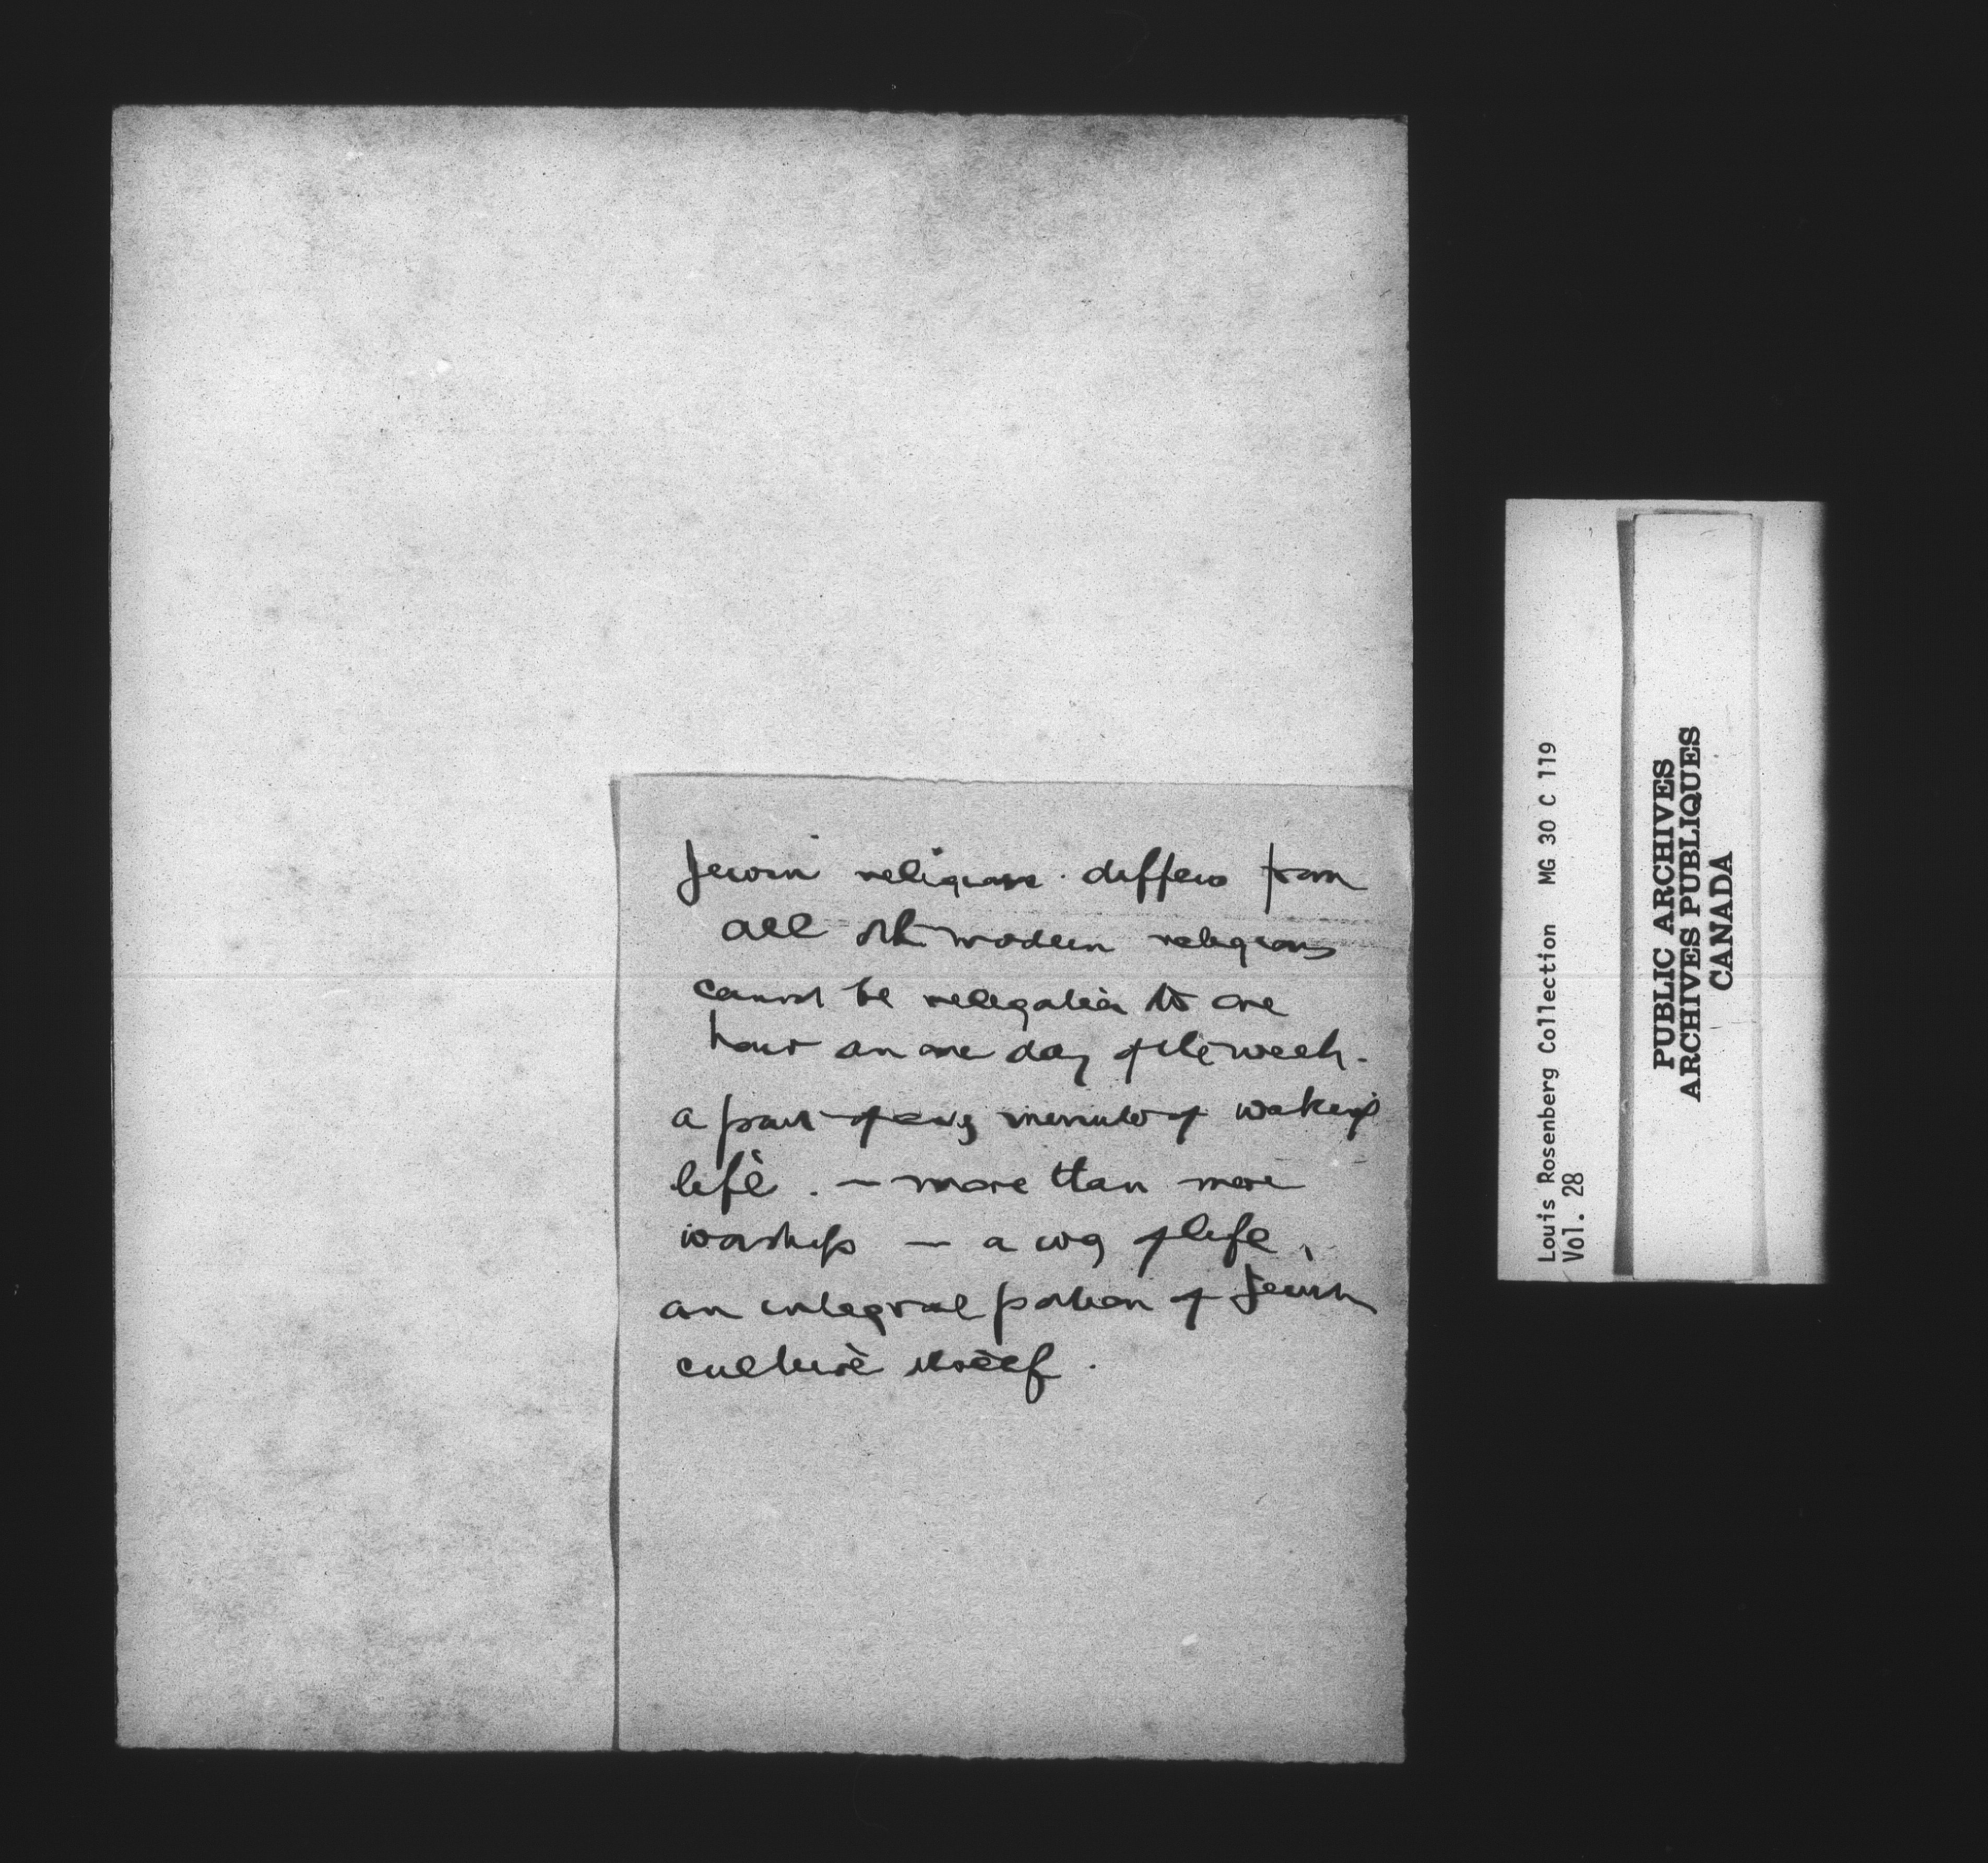 Jewish religion differs from
all other modern religions
cannot be relegated to one
hour on one day of the week.
a part of every minute of waking
life. — more than mere
worship — a way of life,
an integral portion of Jewish
culture itself.
Louis Rosenberg Collection MG 30 C 119
Vol. 28
PUBLIC ARCHIVES
ARCHIVES PUBLIQUES
CANADA